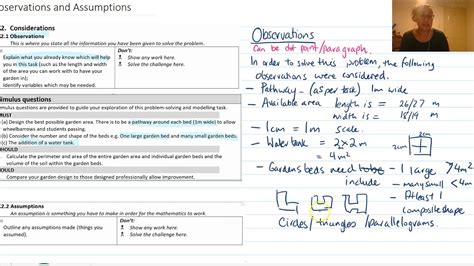 oservations and Assumptions
2. Considerations
2.1 Observations
This is where you state all the information you have been given to solve the problem.
Explain what you already know which will help
you in this task (such as the length and width
of the area you can work with to have your
garden in);
Identify variables which may be needed.
Don't:
• Show any work here.
• Solve the challenge here.
timulus questions
timulus questions are provided to guide your exploration of this problem-solving and modelling task.
MUST
(a) Design the best possible garden area. There is to be a pathway around each bed (1m wide) to allow
wheelbarrows and students passing.
(b) Consider the number and shape of the beds e.g. One large garden bed and many small garden beds.
(c) The addition of a water tank.
SHOULD
Calculate the perimeter and area of the entire garden area and individual garden beds and the
volume of the soil within the garden beds.
COULD
Compare your garden design to those designed professionally allow improvement.
2.2 Assumptions
An assumption is something you have to make in order for the mathematics to work.
Outline any assumptions made (things you
assumed).
Don't:
• Show any work here.
• Solve the challenge here.
Observations
Can be dot point/paragraph.
In order to solve this problem, the following
observations were considered.
- Pathway - (as per task) 1m wide
- Available area length is = 26/27 m
width is = 18/19 m
- 1cm = 1m scale.
- Water tank = 2×2m
= 4m²
2cm
2cm
- Gardens beds need to be - 1 large >4m²
include - many small <4m²
- Atleast 1
composite shape
Circles/triangles/parallelograms.